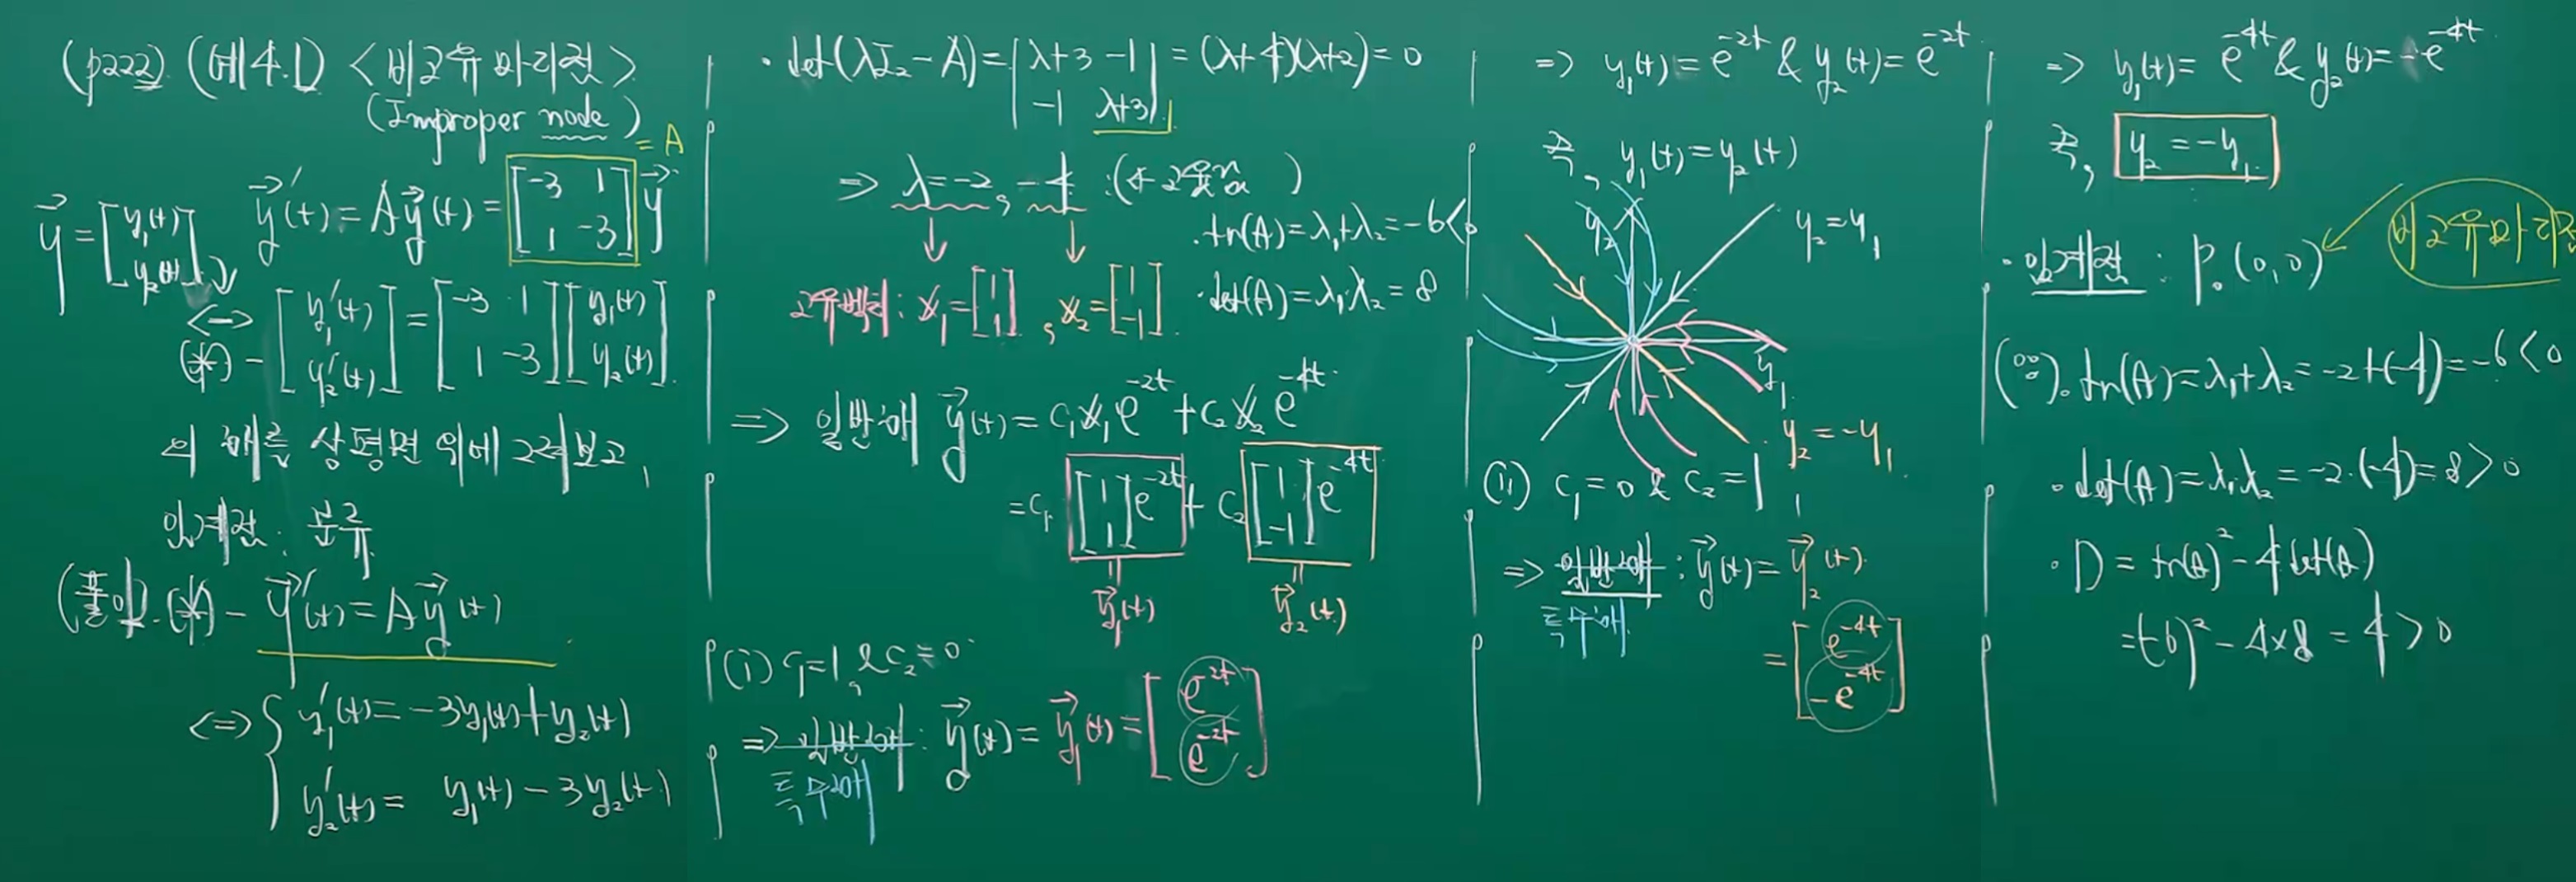 (p222) (예4.1) <비고유마디점>
(Improper node)
= A
y⃗ = [y₁(t) y₂(t)], y⃗'(t) = Ay⃗(t) = [-3 1; 1 -3] y⃗
<-> (*) - [y₁'(t); y₂'(t)] = [-3 1; 1 -3][y₁(t); y₂(t)]
의 해를 상평면 위에 그려보고,
임계점: 분류
(풀이). (*) - y⃗'(t) = Ay⃗(t)
<=> { y₁'(t) = -3y₁(t) + y₂(t)
y₂'(t) = y₁(t) - 3y₂(t)
· det(λI₂ - A) = |λ+3 -1; -1 λ+3| = (λ+4)(λ+2) = 0
=> λ = -2, -4 : (
· tr(A) = λ₁+λ₂ = -6 < 0
· det(A) = λ₁·λ₂ = 8
고유벡터 : x₁ = [1; 1], x₂ = [1; -1].
=> 일반해 y⃗(t) = c₁x₁e^{-2t} + c₂x₂e^{-4t}
= c₁ [1; 1]e^{-2t} + c₂ [1; -1]e^{-4t}
y⃗₁(t) y⃗₂(t)
(i) c₁=1, & c₂=0
=> 일반해 : y⃗(t) = y⃗₁(t) = [e^{-2t}; e^{-2t}]
특수해
=> y₁(t) = e^{-2t} & y₂(t) = e^{-2t}
즉, y₁(t) = y₂(t)
y₂
y₂ = y₁
y₁
y₂ = -y₁
(ii) c₁ = 0 & c₂ = 1
=> 일반해 : y⃗(t) = y⃗₂(t)
특수해
= [e^{-4t}; -e^{-4t}]
=> y₁(t) = e^{-4t} & y₂(t) = -e^{-4t}
즉, y₂ = -y₁
비고유마디점
· 임계점 : P₀(0,0)
(∵). tr(A) = λ₁+λ₂ = -2+(-4) = -6 < 0
· det(A) = λ₁·λ₂ = -2·(-4) = 8 > 0
· D = tr(A)² - 4det(A)
= (-6)² - 4×8 = 4 > 0